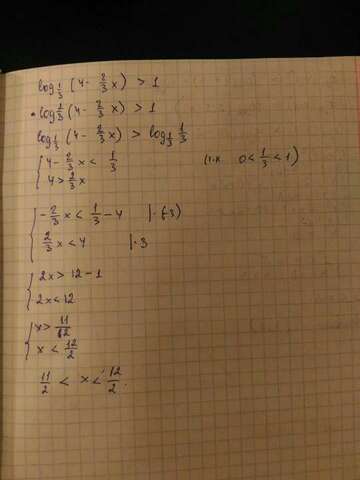 log_{1/3} (4 - 2/3 x) > 1
• log_{1/3} (4 - 2/3 x) > 1
log_{1/3} (4 - 2/3 x) > log_{1/3} 1/3
{ 4 - 2/3 x < 1/3 (т.к. 0 < 1/3 < 1)
4 > 2/3 x
{ - 2/3 x < 1/3 - 4 | · (-3)
2/3 x < 4 | · 3
{ 2x > 12 - 1
2x < 12
{ x > 11/2
x < 12/2
11/2 < x < 12/2